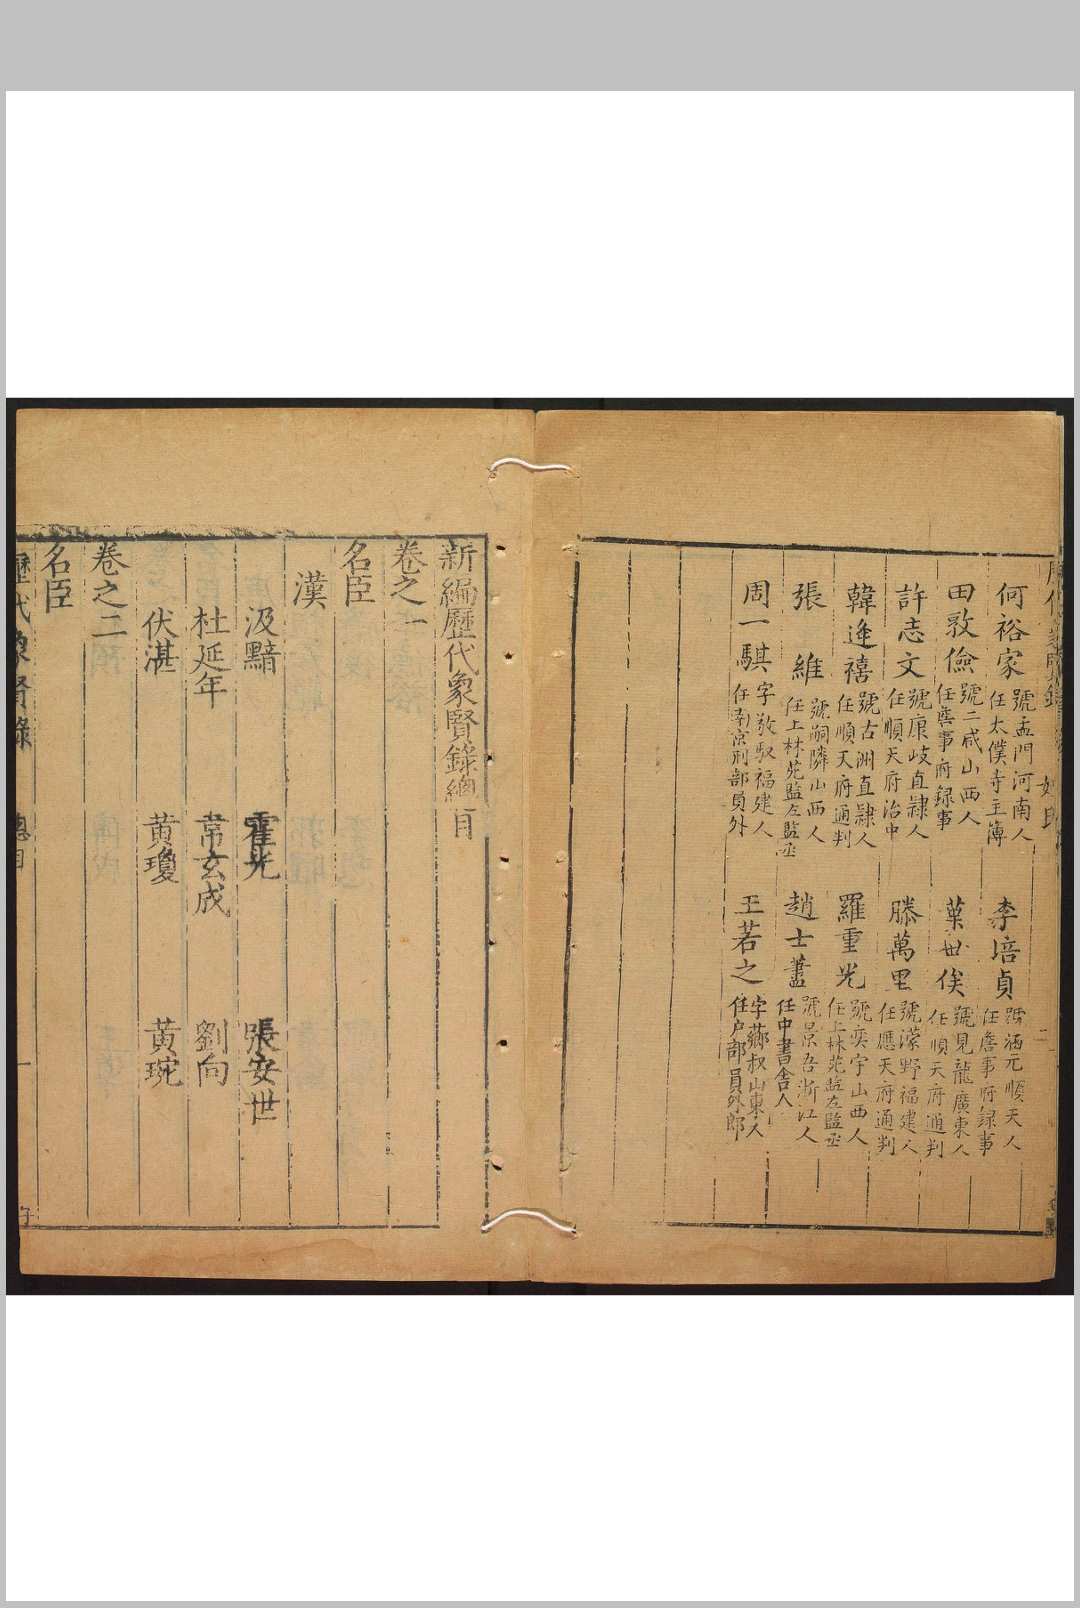 何裕家 號孟門河南人 任太僕寺主簿
李培貞 號涵元順天人 任詹事府録事
田敦儉 號二咸山西人 任詹事府録事
葉世俟 號見龍廣東人 任順天府通判
許志文 號康岐直隷人 任順天府治中
滕萬里 號濛野福建人 任應天府通判
韓逢禧 號古洲直隷人 任順天府通判
羅重光 號奕宇山西人 任上林苑監左監丞
張維 號嗣隣山西人 任上林苑監左監丞
趙士藎 號景吾浙江人 任中書舍人
周一騏 字敬馭福建人 任南京刑部員外
王若之 字薌叔山東人 任户部員外郎
新編歷代象賢錄總目
卷之一
名臣
漢
汲黯 霍光 張安世
杜延年 韋玄成 劉向
伏湛 黃瓊 黃琬
卷之二
名臣
歷代象賢錄 總目 一